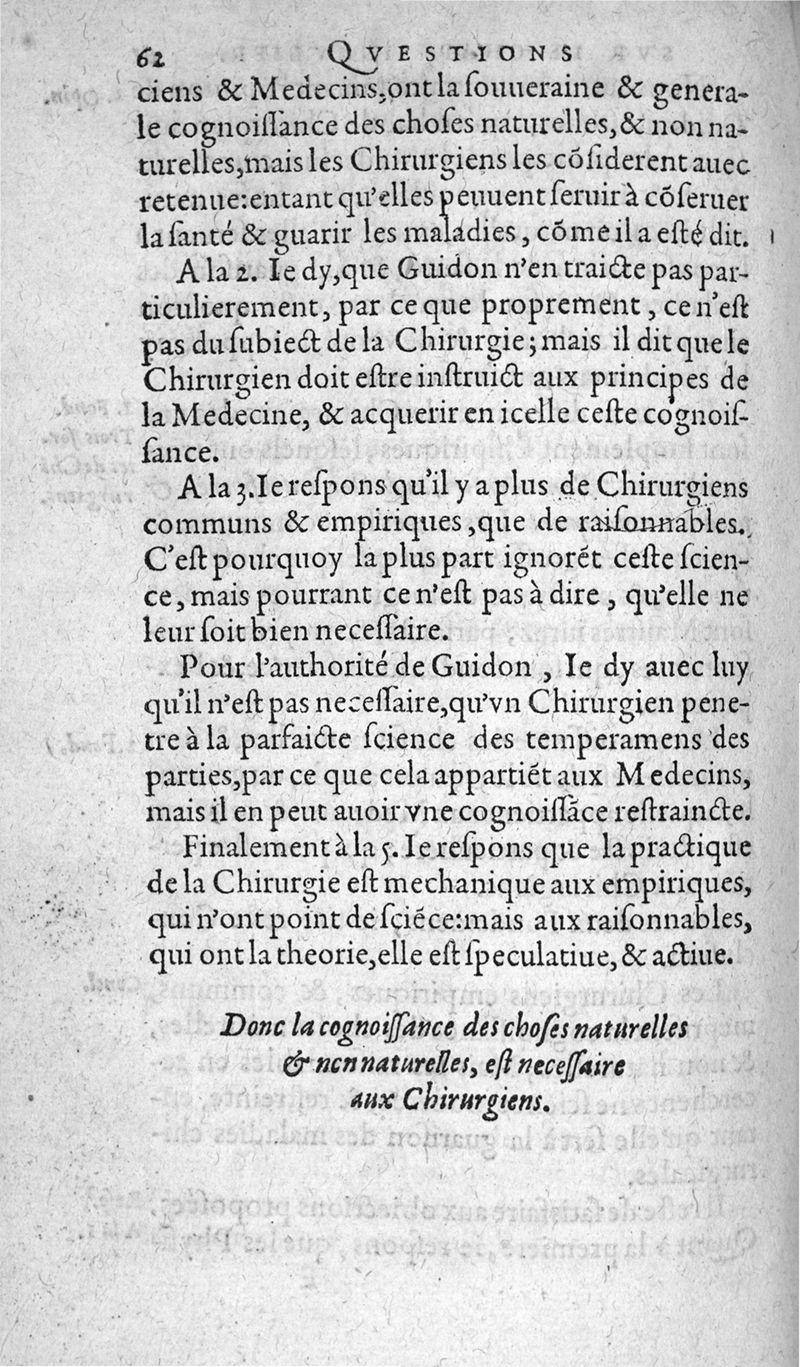 62 QVESTIONS
ciens & Medecins, ont la ſouueraine & genera-
le cognoiſſance des choſes naturelles, & non na-
turelles, mais les Chirurgiens les cõſiderent auec
retenue: entant qu'elles peuuent ſeruir à cõſeruer
la ſanté & guarir les maladies, cõme il a eſté dit.
A la 2. Ie dy, que Guidon n'en traicte pas par-
ticulierement, par ce que proprement, ce n'eſt
pas du ſubiect de la Chirurgie; mais il dit que le
Chirurgien doit eſtre inſtruict aux principes de
la Medecine, & acquerir en icelle ceſte cognoiſ-
ſance.
A la 3. Ie reſpons qu'il y a plus de Chirurgiens
communs & empiriques, que de raiſonnables.
C'eſt pourquoy la plus part ignorẽt ceſte ſcien-
ce, mais pourrant ce n'eſt pas à dire, qu'elle ne
leur ſoit bien neceſſaire.
Pour l'authorité de Guidon, Ie dy auec luy
qu'il n'eſt pas neceſſaire, qu'vn Chirurgien pene-
tre à la parfaicte ſcience des temperamens des
parties, par ce que cela appartiẽt aux Medecins,
mais il en peut auoir vne cognoiſſãce reſtraincte.
Finalement à la 5. Ie reſpons que la practique
de la Chirurgie eſt mechanique aux empiriques,
qui n'ont point de ſciẽce: mais aux raiſonnables,
qui ont la theorie, elle eſt ſpeculatiue, & actiue.
Donc la cognoiſſance des choſes naturelles
& non naturelles, eſt neceſſaire
aux Chirurgiens.